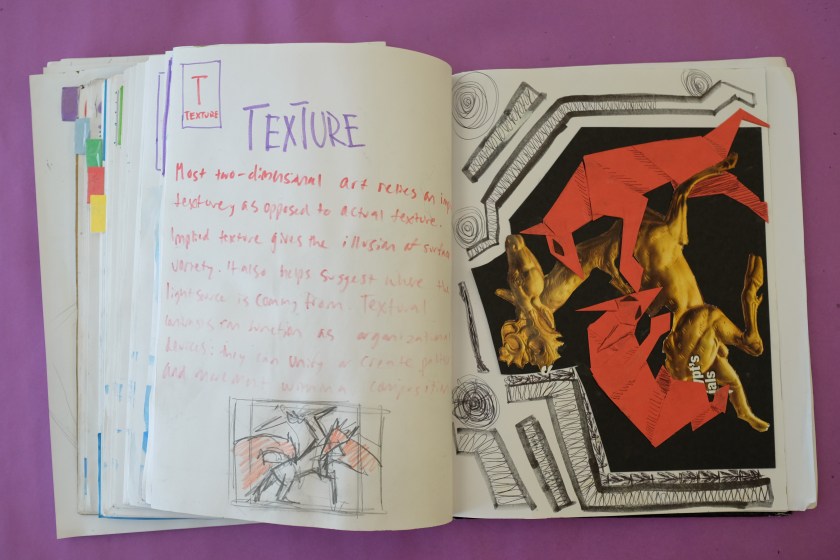 T
TEXTURE
TEXTURE
Most two-dimensional art relies on imp
texturey as opposed to actual texture.
Implied texture gives the illusion of surface
variety. It also helps suggest where the
light source is coming from. Textural
can function as organizational
devices: they can unify a create patter
and movement within a composition
ypt's
ials